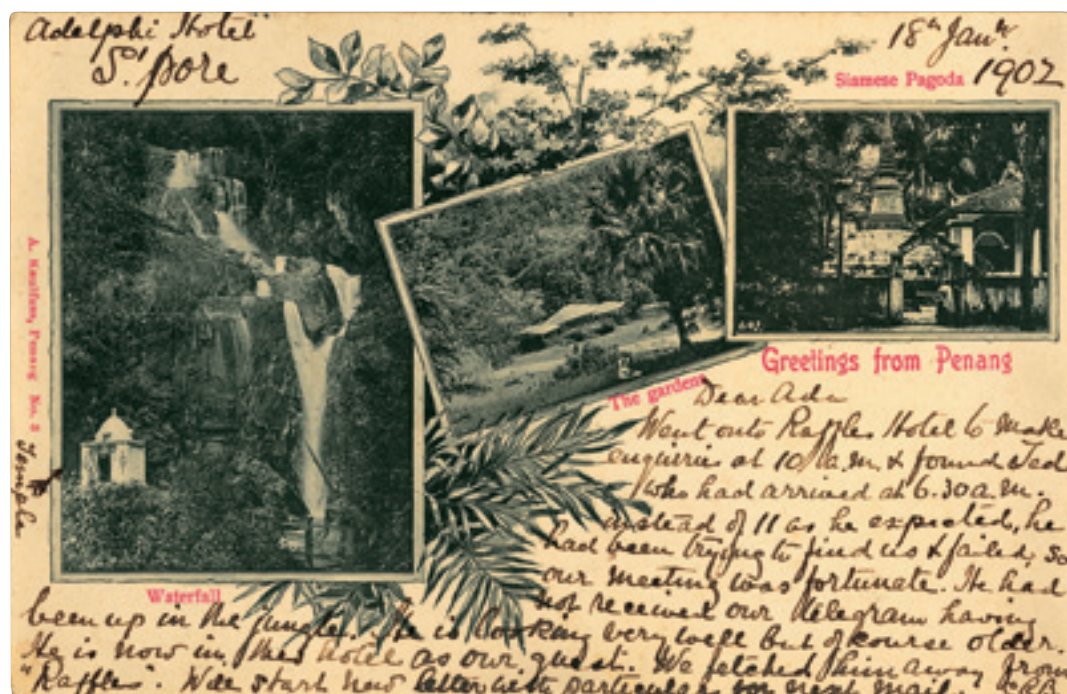 Adelphi Hotel
S'pore
18th Jany.
1902
Siamese Pagoda
A. Kaulfuss, Penang No. 3
Temple
Waterfall
The gardens
Greetings from Penang
Dear Ada
Went onto Raffles Hotel to make
enquiries at 10 a.m. & found Ted
who had arrived at 6.30 a.m.
instead of 11 as he expected, he
had been trying to find us & failed, so
our meeting was fortunate. He had
not received our telegram having
been up in the jungle. He is looking very well but of course older.
He is now in this hotel as our guest. We fetched him away from
"Raffles". Will start new letter with particulars for next mail.